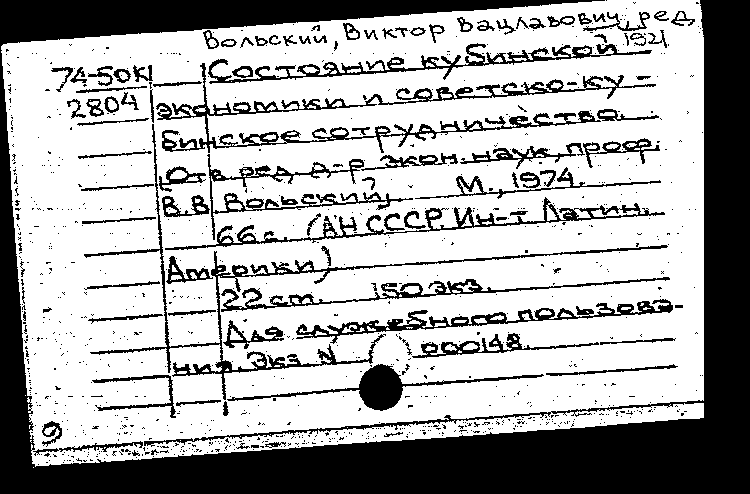 Вольский, Виктор Вацлавович, ред.
1921
74-50к Состояние кубинской
2804 экономики и советско-ку-
бинское сотрудничество.
[Отв. ред. д-р экон. наук, проф.
В.В. Вольский]. М., 1974.
66 с. (АН СССР. Ин-т Латин.
Америки)
22 см. 150 экз.
Для служебного пользова-
ния. Экз. № 000148.
9